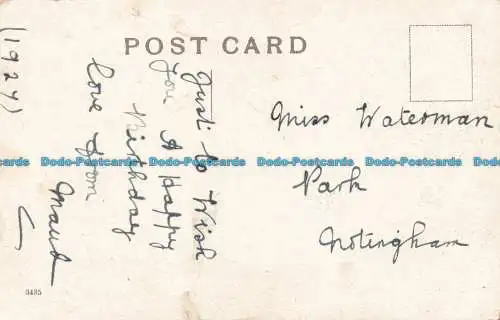 POST CARD
(1927)
Just to Wish
You A Happy
Birthday
Love from
Maud
Miss Waterman
Park
Notingham
Dodo-Postcards Dodo-Postcards Dodo-Postcards Dodo-Postcards Dodo-Postcards
0435